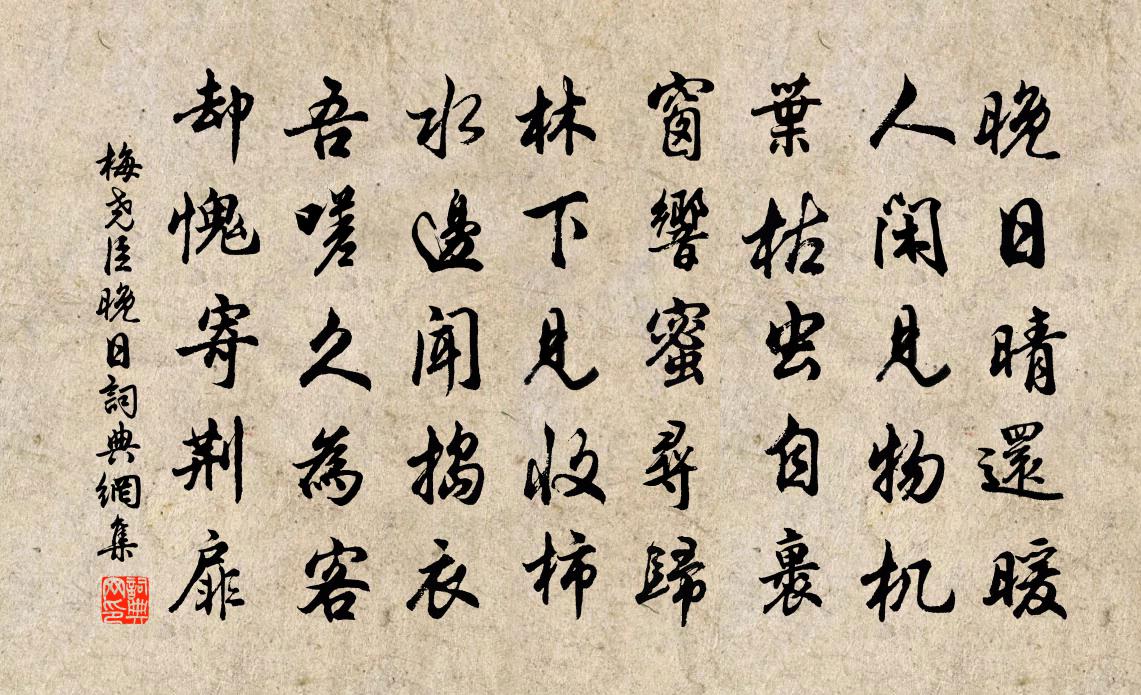 晚日晴還暖
人闲見物机
葉枯虫自裹
窗響蜜尋歸
林下見收柿
水邊聞搗衣
吾嗟久為客
却愧寄荆扉
梅尧臣晚日詞典網集
詞典网印